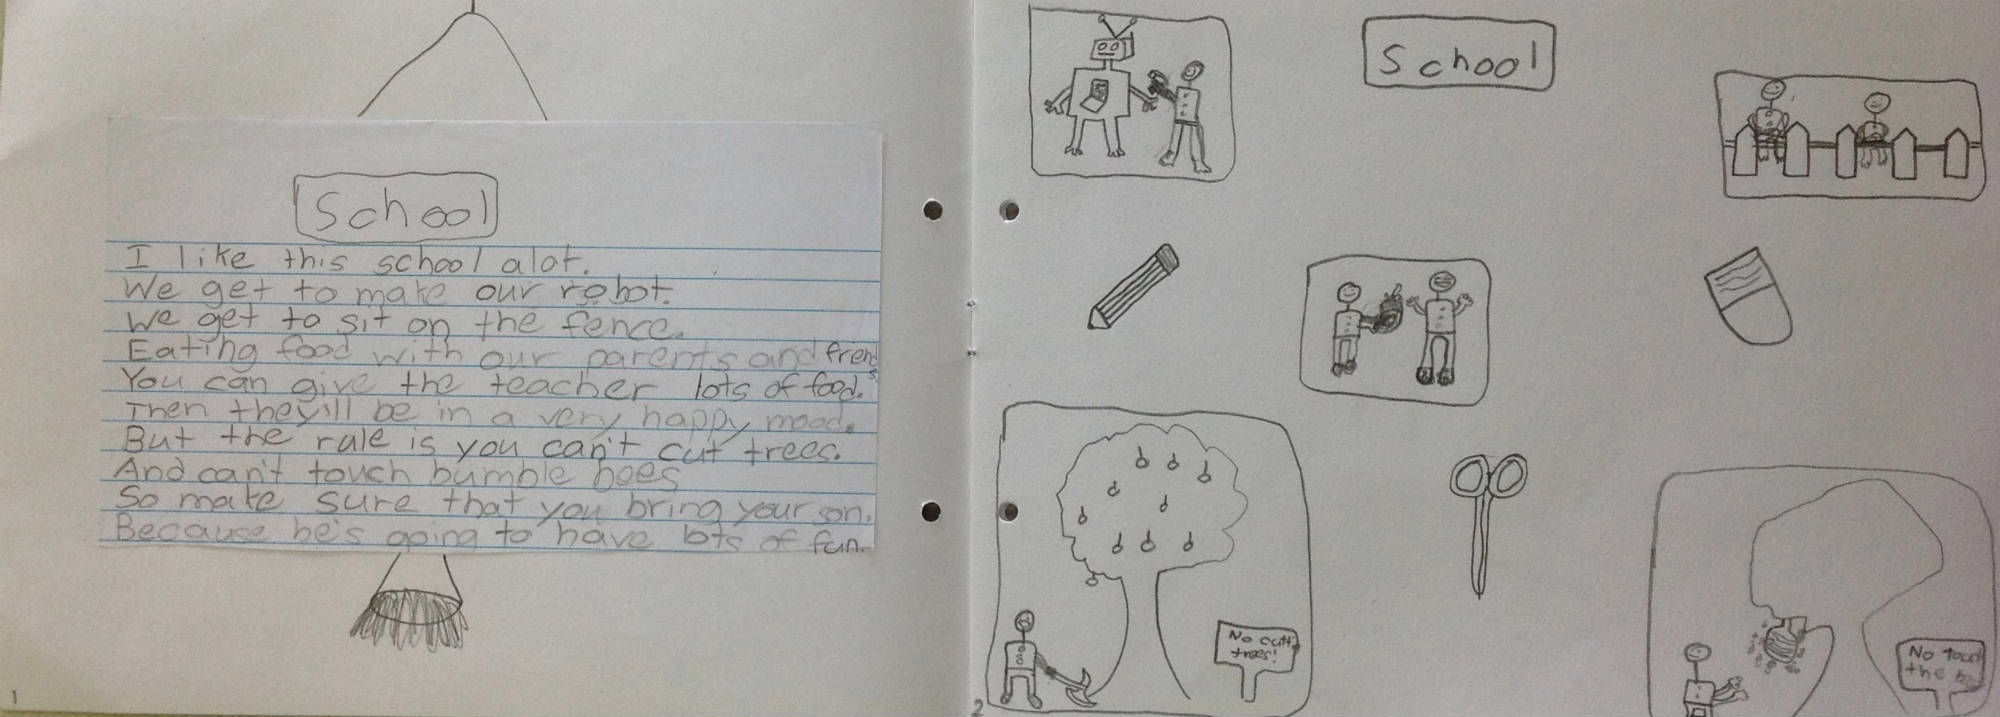 School
I like this school alot.
We get to make our robot.
We get to sit on the fence.
Eating food with our parents and friends
You can give the teacher lots of food.
Then they'll be in a very happy mood.
But the rule is you can't cut trees.
And can't touch bumble bees
So make sure that you bring your son.
Because he's going to have lots of fun.
1
School
No cutting
trees!
No
the
2